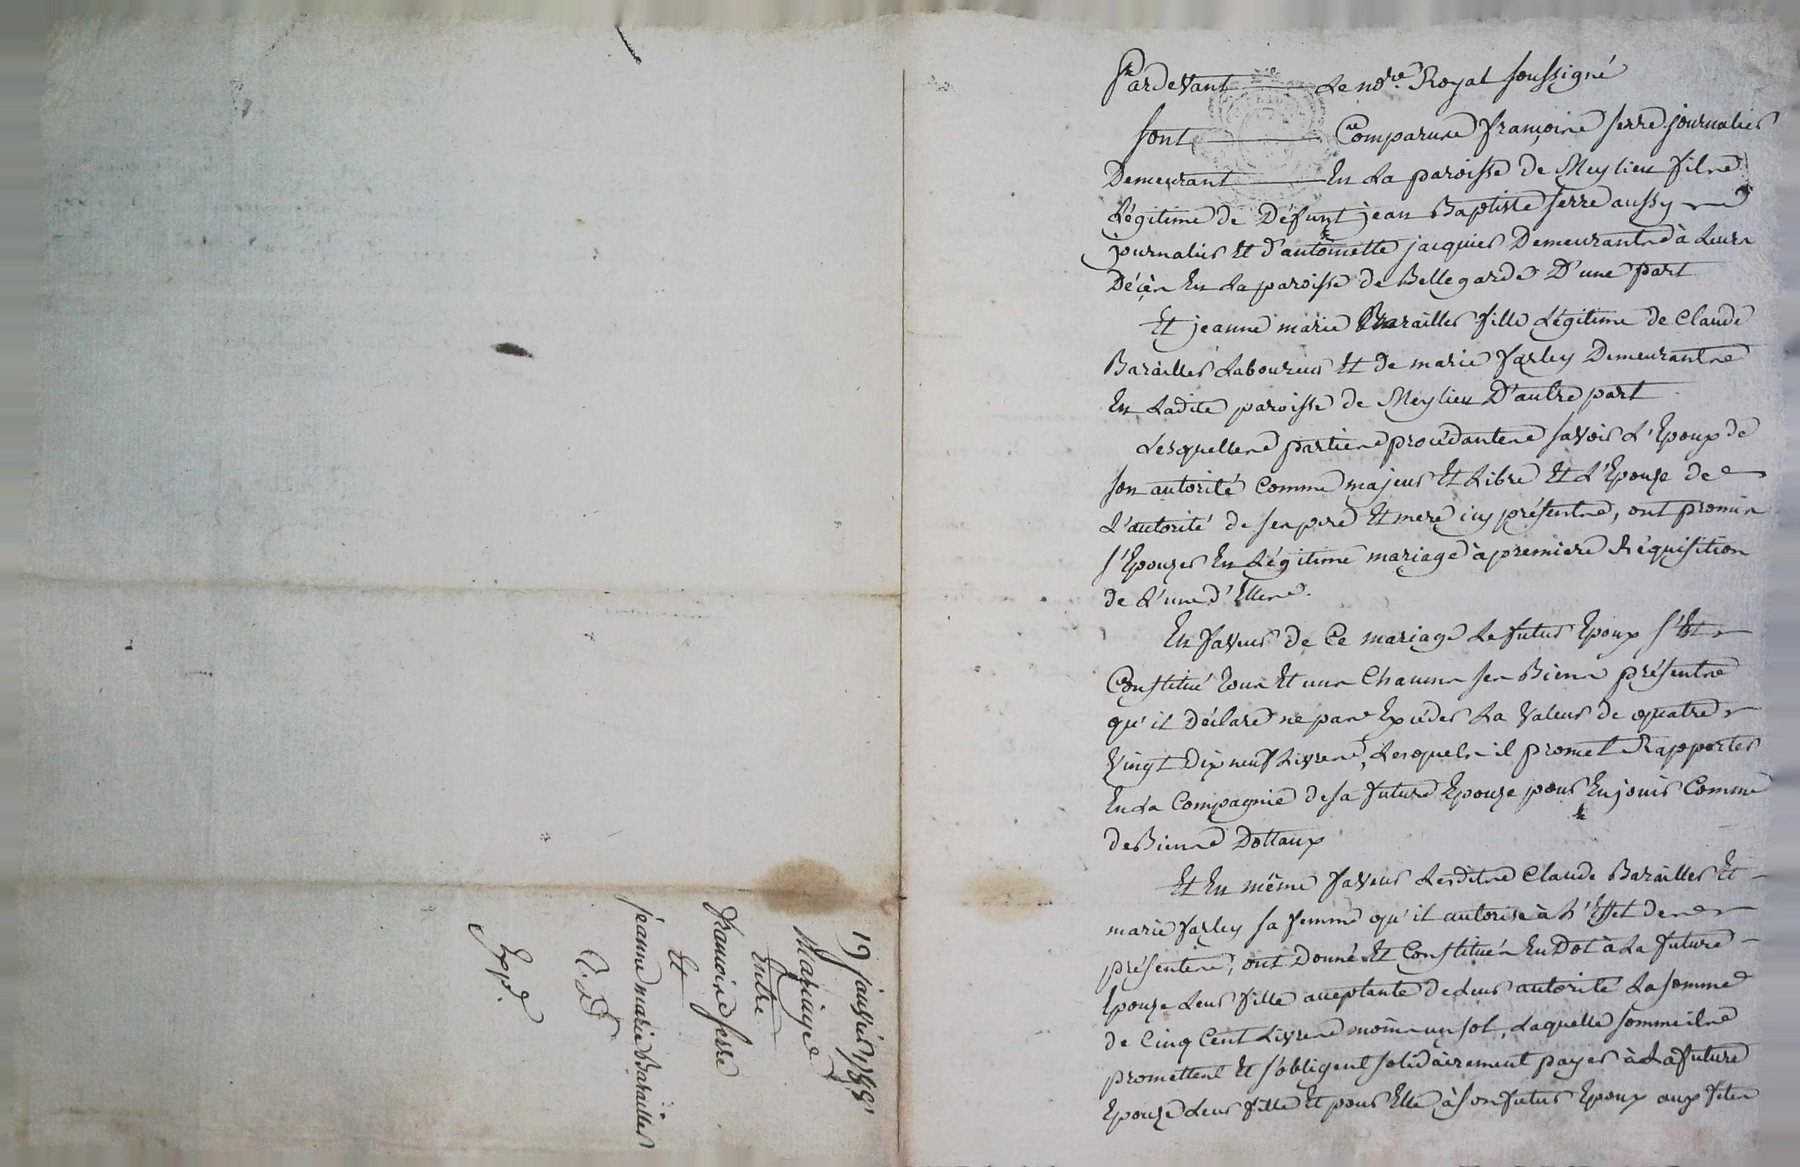 Pardevant Le no.re Royal soussigné
sont Comparus françois serre journalier
Demeurant En La paroisse de Meylieu fils
Légitime de Défunt jean Baptiste serre aussy
journalier Et d'antoinette jacquier Demeurants à Leurs
Décès En La paroisse de Bellegarde D'une part
Et jeanne marie Barailler fille Légitime de Claude
Barailler Laboureur Et De marie farley Demeurants
En Ladite paroisse de Meylieu D'autre part
Lesquelles parties procédantes savoir L'Epoux de
son autorité Comme majeur Et Libre Et L'Epouze de
L'autorité de ses pere Et mere icy présents, ont promis
s'Epouzer En Légitime mariage à premiere Réquisition
de L'une d'Elles.
En faveur de Ce mariage Le futur Epoux s'Est
Constitué tous Et uns Chacuns ses Biens présents
qu'il Déclare ne pas Excéder La Valeur de quatre
Vingt Dix neuf Livres, Lesquels il promet Rapporter
En La Compagnie de sa future Epouze pour En jouir Comme
de Biens Dottaux
Et En même faveur Lesdits Claude Barailler Et
marie farley sa femme qu'il autorise à L'Effet des
présentes, ont Donné Et Constitués En Dot à La future
Epouze Leur fille acceptante de Leur autorité La somme
de Cinq Cent Livres moins un sol, Laquelle somme ils
promettent Et s'obligent solidairement payer à La future
Epouze Leur fille Et pour Elle à son futur Epoux aux fêtes
19 janvier 1788
Mariage
Entre
francois serre
Et
jeanne marie Barailler
Exp.é